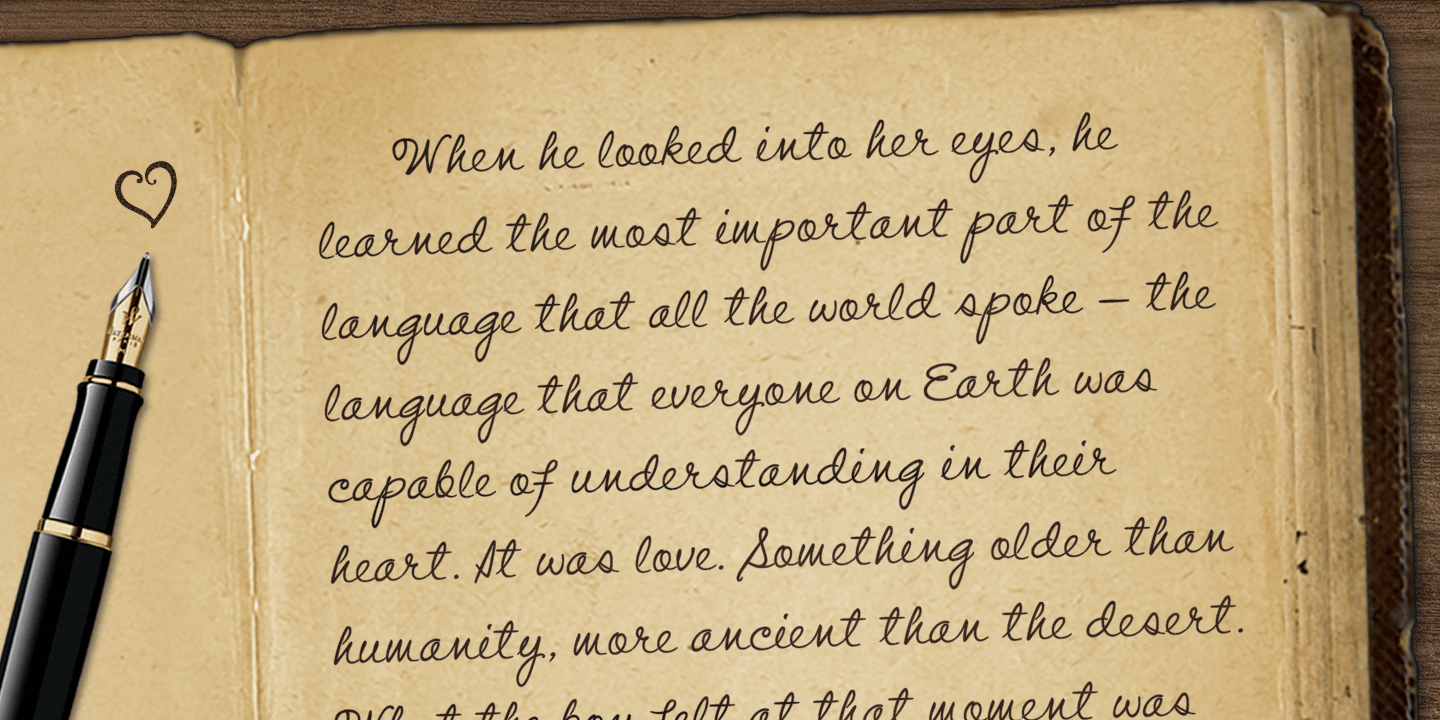 When he looked into her eyes, he
learned the most important part of the
language that all the world spoke – the
language that everyone on Earth was
capable of understanding in their
heart. It was love. Something older than
humanity, more ancient than the desert.
What the boy felt at that moment was